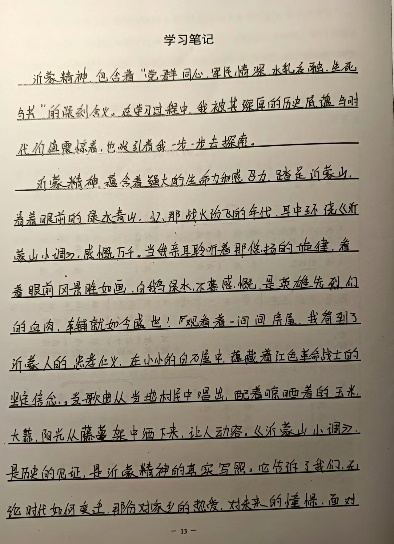 学习笔记
沂蒙精神，包含着“党群同心，军民情深，水乳交融，生死
与共”的深刻含义。在学习过程中，我被其深厚的历史底蕴与时
代价值震惊着，也吸引着我一步一步去探索。
沂蒙精神，蕴含着强大的生命力和感召力，踏足沂蒙山，
看着眼前的绿水青山，忆那战火纷飞的年代，耳中环绕《沂
蒙山小调》，感慨万千。当我亲耳聆听着那悠扬的旋律，看
着眼前风景胜如画，白鹅绿水，不禁感慨，是英雄先烈们
的血肉，铸就如今盛世！参观着一间间房屋，我看到了
沂蒙人的忠孝仁义，在小小的房屋中蕴藏着红色革命战士的
坚定信念。爱歌曲从当地村民中唱出，配着晾晒着的玉米、
大蒜，阳光从藤蔓架中洒下来，让人动容。《沂蒙山小调》，
是历史的见证，是沂蒙精神的真实写照。它告诉了我们，无
论时代如何变迁，那份对家乡的热爱，对未来的憧憬，面对
- 13 -